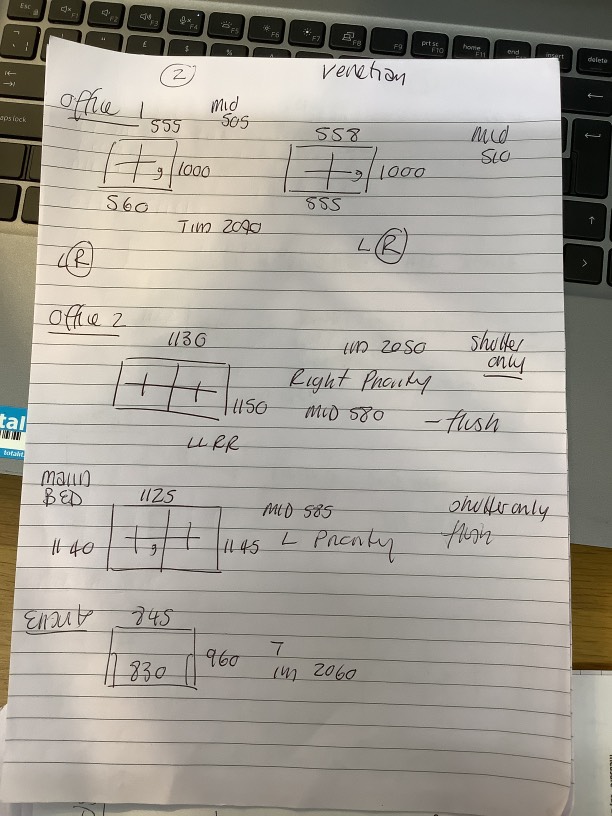 ② Venetian
Office 1
555
Mid
505
1000
560
558
Mid
510
1000
555
Tim 2090
L R
L R
Office 2
1130
1m 2050
Shutter
only
Right Priority
1150
MID 580
- flush
LLRR
main
BED
1125
MID 585
shutter only
1140
1145
L Priority
flush
845
830
960
T
1m 2060
Esc
F3
F4
F5
F6
F7
F8
F9
prt sc
F10
home
F11
end
insert
delete
caps lock
tal